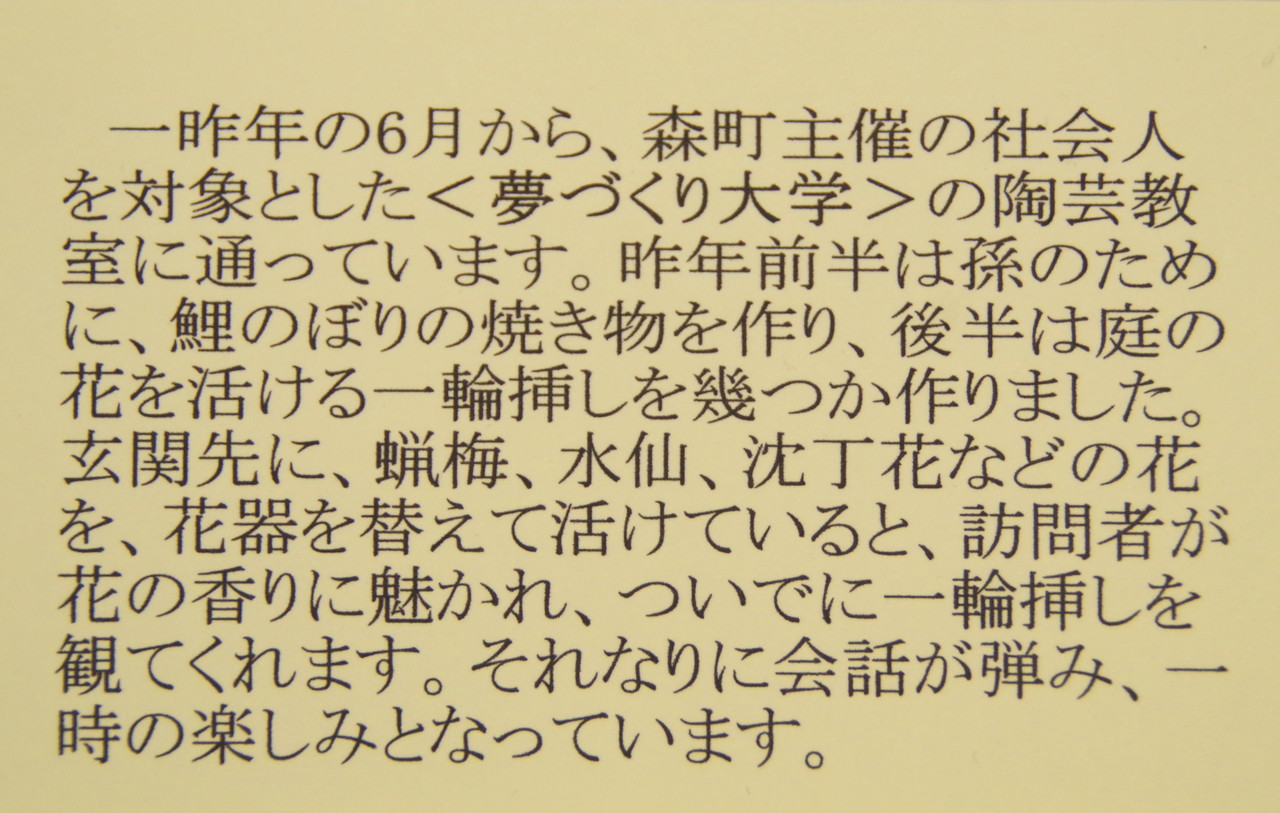 一昨年の6月から、森町主催の社会人
を対象とした＜夢づくり大学＞の陶芸教
室に通っています。昨年前半は孫のため
に、鯉のぼりの焼き物を作り、後半は庭の
花を活ける一輪挿しを幾つか作りました。
玄関先に、蝋梅、水仙、沈丁花などの花
を、花器を替えて活けていると、訪問者が
花の香りに魅かれ、ついでに一輪挿しを
観てくれます。それなりに会話が弾み、一
時の楽しみとなっています。